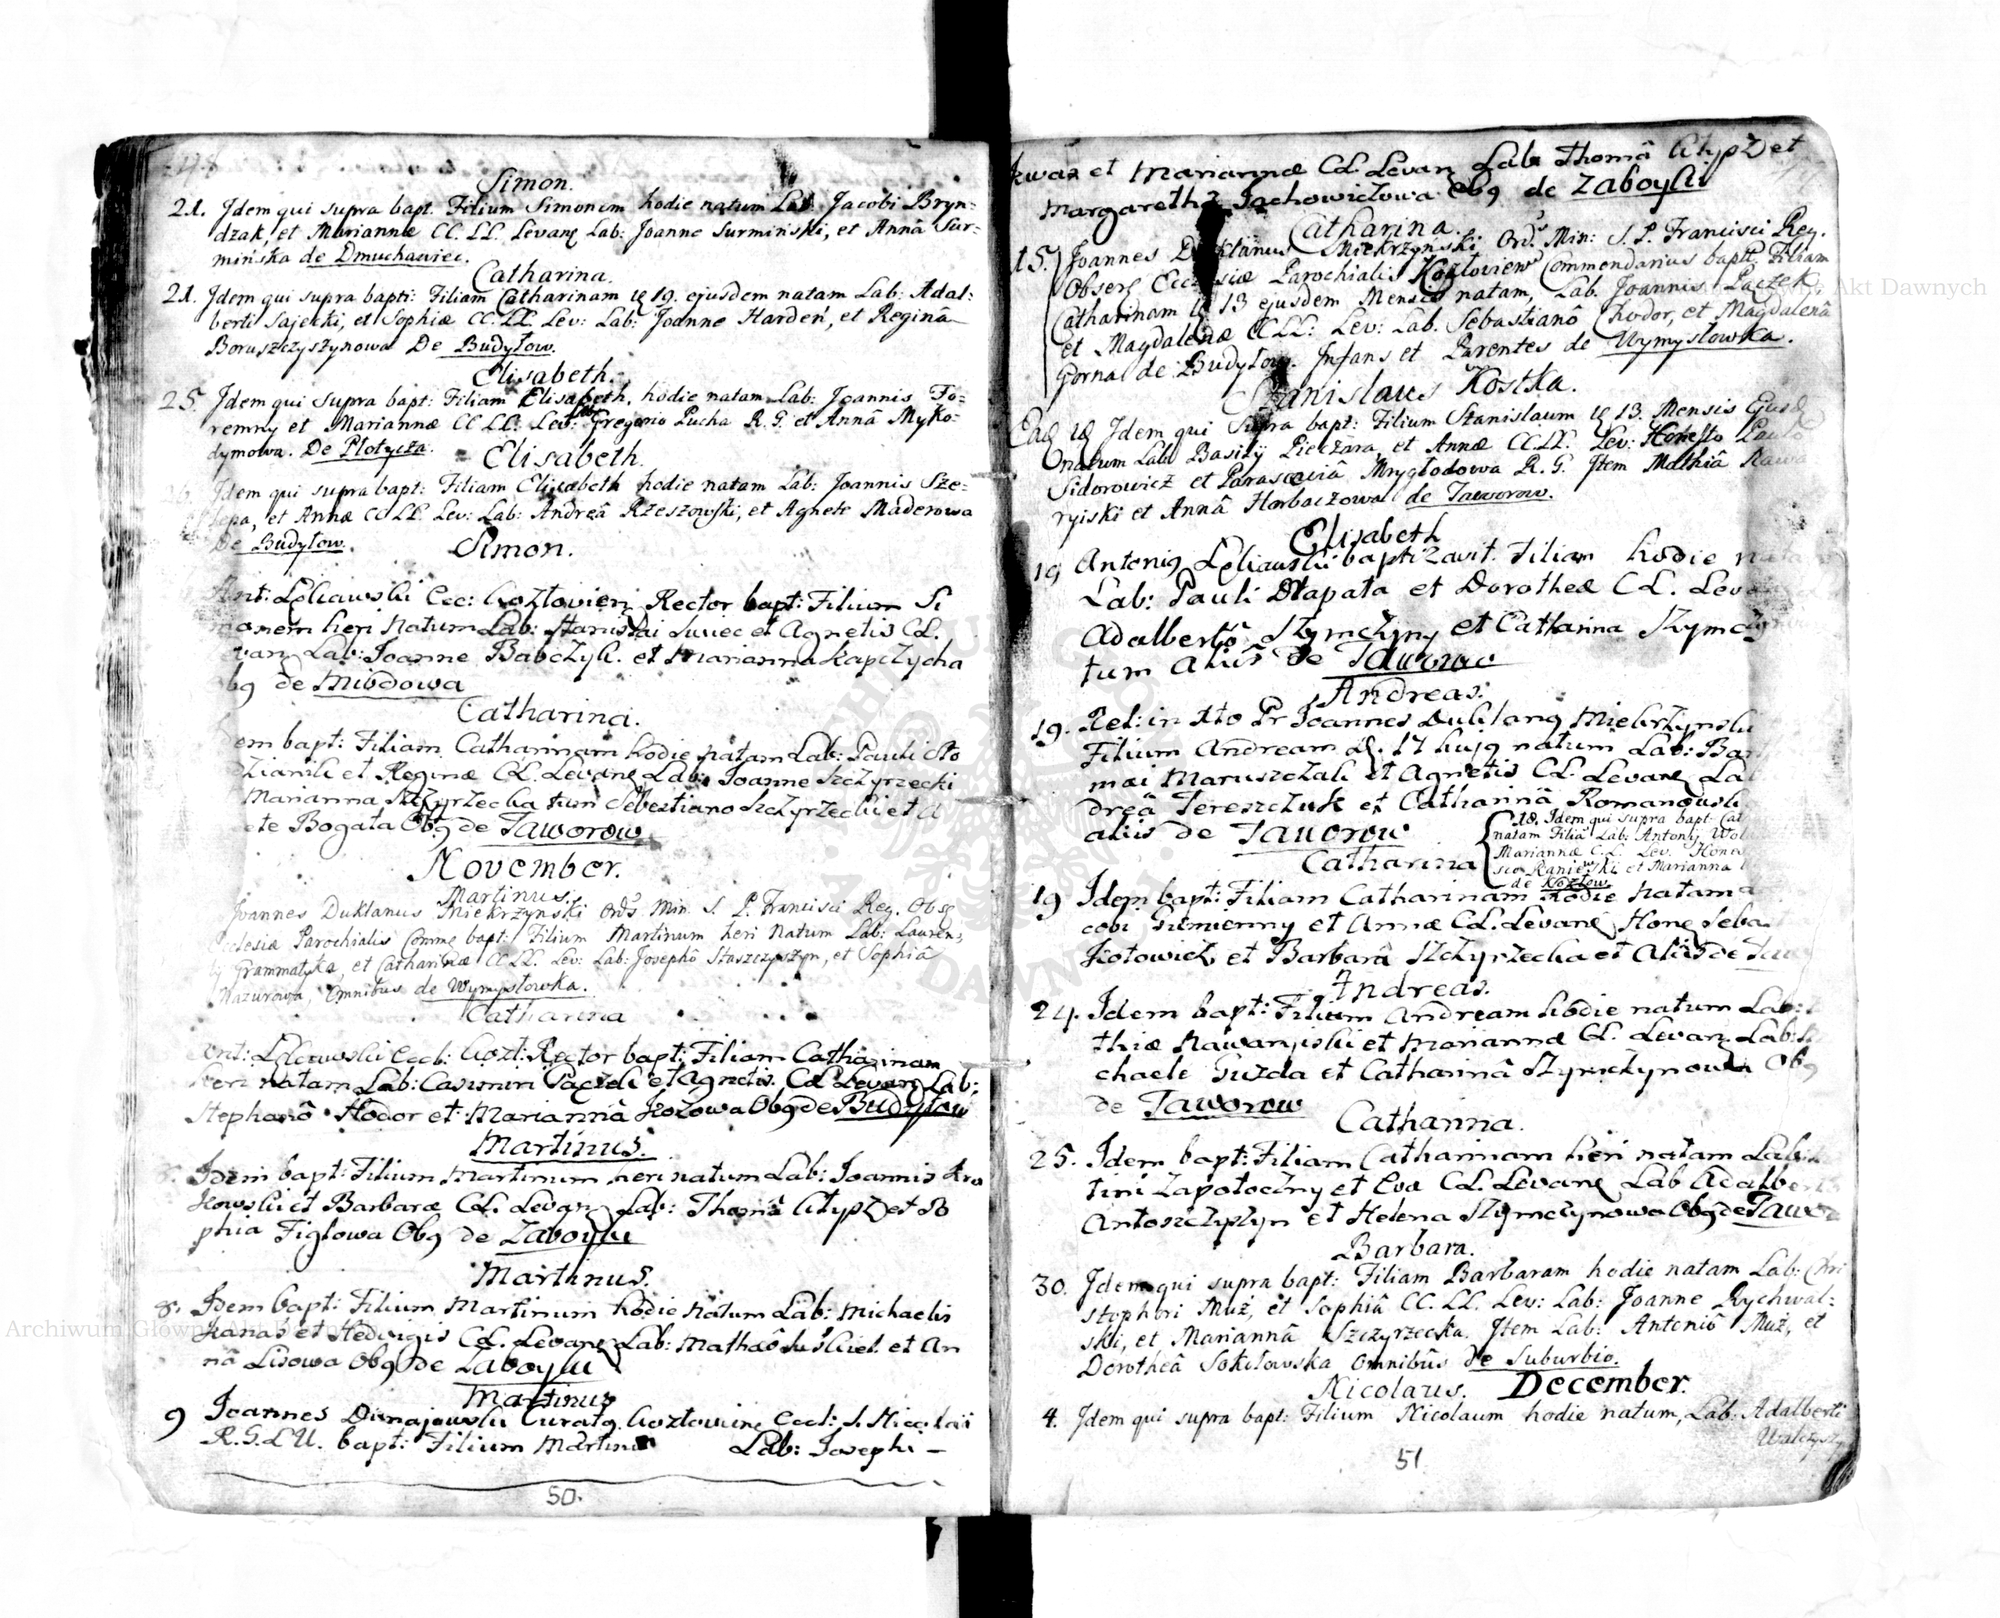 Simon.
21. Idem qui supra bapt. Filium Simonem hodie natum Lab: Jacobi Bryn=
dzak, et Mariannæ CC. LL. Levanę Lab: Joanne Surmiński, et Annâ Sur=
mińska de Dmuchawiec.
Catharina.
21. Idem qui supra bapti: Filiam Catharinam 19. ejusdem natam Lab: Adal=
berti Sajecki, et Sophiæ CC. LL. Lev: Lab: Joanne Harden, et Reginâ
Boruszczyszynowa De Budyłow.
Elisabeth.
25. Idem qui supra bapt: Filiam Elisabeth, hodie natam Lab: Joannis To=
remny et Mariannæ CC LL: Lev: Gregorio Pucha R. G. et Annâ Myko=
dymowa. De Płotycza.
Elisabeth.
26. Idem qui supra bapt: Filiam Elisabeth hodie natam Lab: Joannis Sze=
lepa, et Annæ CC LL. Lev: Lab: Andreâ Rzeszowski, et Agnete Maderowa
De Budyłow.
Simon.
Ant: Leliawski Ecc: Kozłovien Rector bapt: Filium Si
monem heri natum Lab: Stanislai Swiec et Agnetis CL.
Levanę Lab: Joanne Babczyk. et Marianna Kapczycha
Obq de Miodowa
Catharina.
Idem bapt: Filiam Catharinam hodie natam Lab: Pauli Sto
dzianik et Reginæ CL. Levanę Lab: Joanne Szczyrzecki
Marianna Szczyrzecka tum Sebestiano Szczyrzecki et A
ete Bogata Obq de Taworow
November.
Martinus.
Joannes Duklanus Miekrzynski Ords. Min. S. P. Francisci Reg. Obse
Ecclesiæ Parochialis Comme bapt: Filium Martinum heri natum Lab: Lauren=
ty Grammatyka, et Catharinæ CC LL. Lev: Lab: Josephô Staszczyszyn, et Sophiâ
Mazurowa, omnibus de Wymysłowka.
Catharina
Ant: Leliawski Eccl: Kozł: Rector bapt: Filiam Catharinam
heri natam Lab: Casimiri Paczek et Agnetis. CL Levanę Lab:
Stephanô Hodor et Mariannâ Kozowa Obq de Budyłow
Martinus.
8. Idem bapt: Filium Martinum heri natum Lab: Joannis Kra
kowski et Barbaræ CL. Levanę Lab: Thomâ Atypz et So
phia Figlowa Obq de Zaboyki
Martinus.
8. Idem bapt: Filium Martinum hodie natum Lab: Michaelis
Kanas et Hedvigis CL. Levanę Lab: Matheô et An
nâ Lisowa Obq de Zaboyki
Martinus
9 Joannes Dunajewski Curatq Kozłovine Eccl: S. Nicolai
R.G.L.U. bapt: Filium Martinum Lab: Josephi –
50.
kwas et Mariannæ CL. Levanę Lab: Thomâ Atypz et
Margaretha Jachowiczowa Obq de Zaboyki
Catharina.
15. Joannes Duklanus Miekrzyński Ords. Min: S. P. Francisci Reg.
Obserę Ecclesiæ Parochialis Kozłoview Commendarius bapti: Filiam
Catharinam 13 ejusdem Mensis natam, Lab. Joannis Paczek,
et Magdalenæ CC LL: Lev: Lab. Sebastianô Chodor, et Magdalenâ
Gorna de Budyłow. Infans et Parentes de Wymysłowka.
Stanislaus Kostka.
Eadę Idem qui Supra bapt: Filium Stanislaum 13. Mensis Ejusd
natum Lab: Basily Pieczara, et Annæ CC.LL. Lev: Honesto Paulo
Sidorowicz et Parascevia Mrygłodowa R. G. Item Mathiâ Rawa
ryiski et Annâ Horbaczowa de Taworow.
Elisabeth
19 Antoniq Leliawski baptizavit Filiam hodie nata
Lab: Pauli Dłapata et Dorotheæ CL. Leva
Adalbertô Szymczyn et Catharina Szymczyn
tum Aliis De Taworow
Andreas.
19. Rel: in Xto Pr Joannes Duklanq Miekrzynski
Filium Andream d. 17 hujq natum Lab: Bart
mæi Maruszczak et Agnetis CL. Levanę La
dreâ Tereszczuk et Catharinâ Romanowsk
aliis de Taworow
18. Idem qui supra bapt: Cat
natam Filiâ Lab: Antonij Wol
Mariannæ C.L. Lev. Hone
sco Raniewski et Marianna
de Kozłow
Catharina
19 Idem bapt: Filiam Catharinam hodie natam
cobi Gumienny et Annæ CL. Levanę Hone Sebas
Kotowicz et Barbarâ Szczyrzecka et Aliis de Taw
Andreas.
24. Idem bapt: Filium Andream hodie natum Lab:
thiæ Rawaryiski et Mariannæ CL. Levanę Lab:
chaele Guzda et Catharinâ Szymczynowa Obq
de Taworow
Catharina.
25. Idem bapt: Filiam Catharinam heri natam Lab:
tini Zapotoczny et Evæ CL. Levanę Lab Adalber
Antoszczyszyn et Helena Szymczynowa Obq de Tawo
Barbara.
30. Idem qui supra bapt: Filiam Barbaram hodie natam Lab: Chri
stophori Muz, et Sophiâ CC. LL. Lev: Lab: Joanne Rychwal=
ski, et Mariannâ Szczyrzecka. Item Lab: Antoniô Muz, et
Dorotheâ Sokołowska omnibus de Suburbio.
Nicolaus. December.
4. Idem qui supra bapt: Filium Nicolaum hodie natum, Lab: Adalberti
Walczysz
51
Archiwum Główne Akt Dawnych